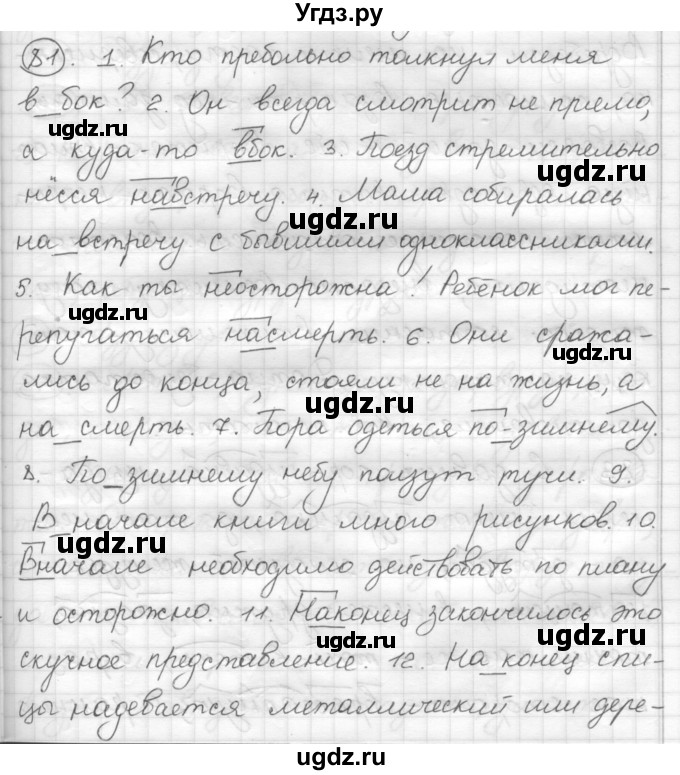 Угдз.ру
81. 1. Кто пребольно толкнул меня
в_бок? 2. Он всегда смотрит не прямо,
ugdz.ru
а куда-то вбок. 3. Поезд стремительно
ugdz.ru
ugdz.ru
нёсся навстречу. 4. Мама собиралась
ugdz.ru
на_встречу с бывшими одноклассниками.
5. Как ты неосторожна! Ребёнок мог пе-
ugdz.ru
репугаться насмерть. 6. Они сража-
ugdz.ru
лись до конца, стояли не на жизнь, а
ugdz.ru
на_смерть. 7. Пора одеться по-зимнему.
ugdz.ru
8. По_зимнему небу ползут тучи. 9.
В_начале книги много рисунков. 10.
ugdz.ru
Вначале необходимо действовать по плану
и осторожно. 11. Наконец закончилось это
ugdz.ru
ugdz.ru
скучное представление. 12. На_конец спи-
ugdz.ru
цы надевается металлический или дере-
ugdz.ru